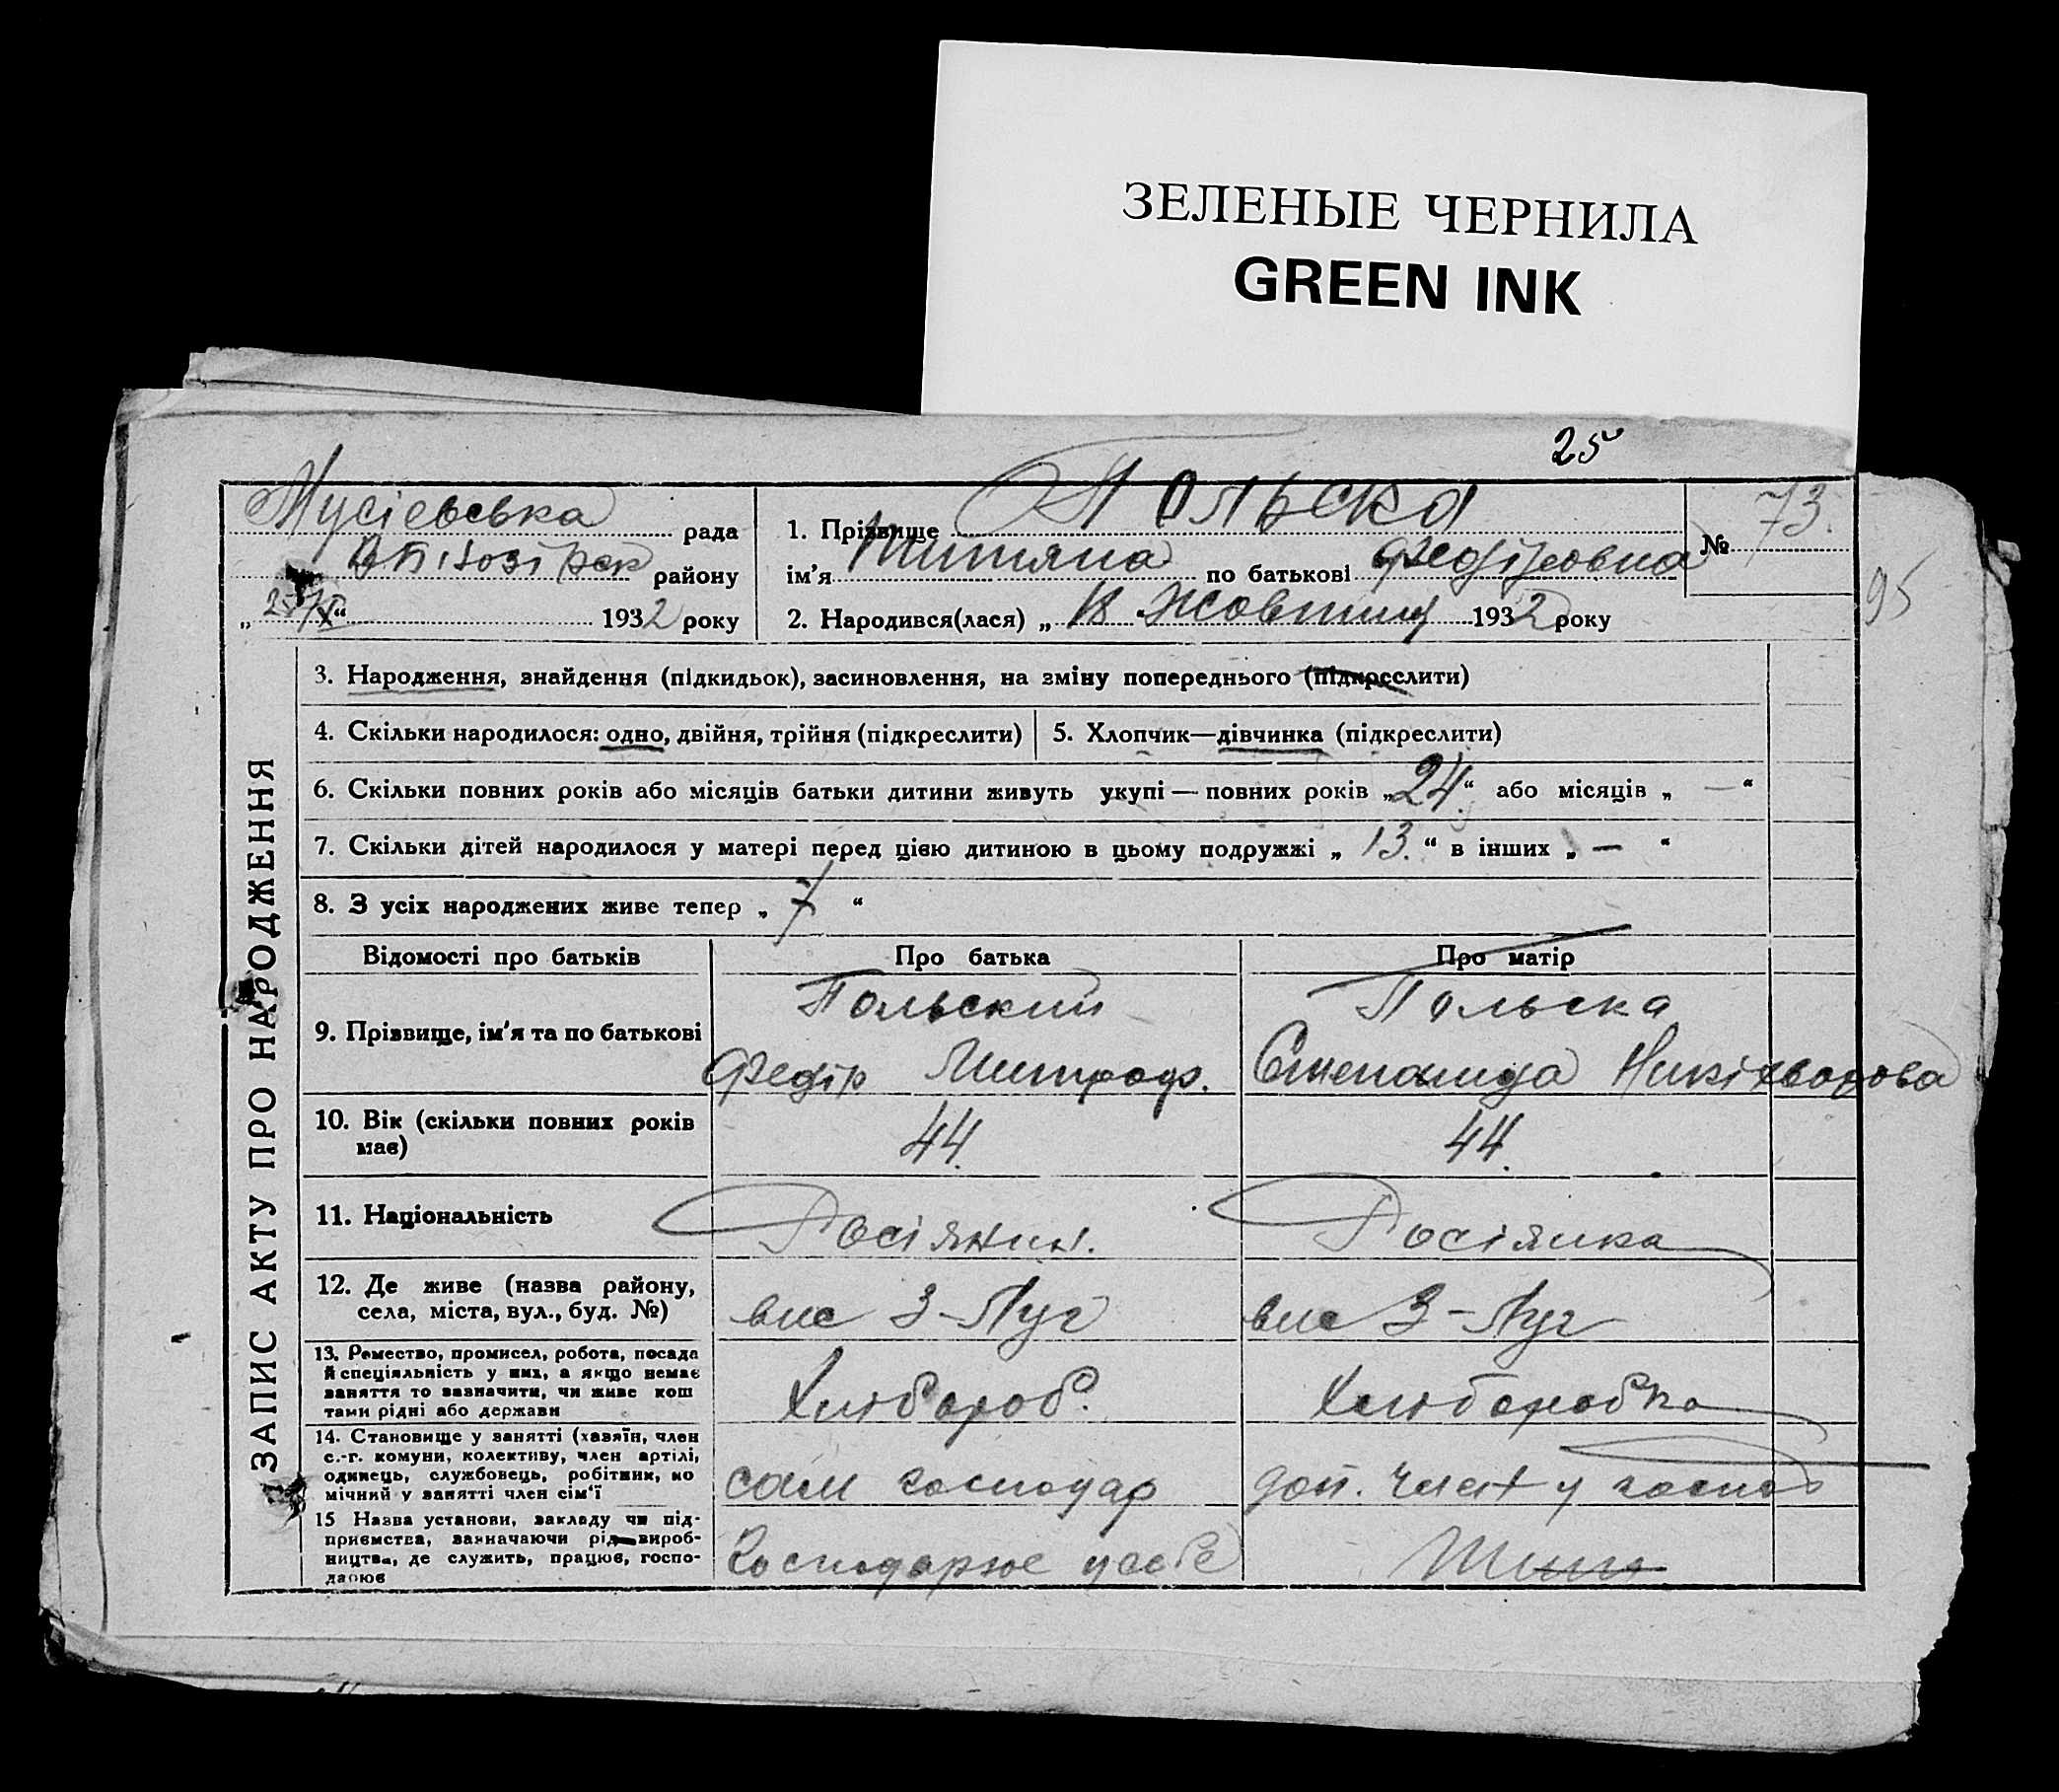 ЗЕЛЕНЫЕ ЧЕРНИЛА
GREEN INK
25
Мусієвська рада
району
„25/X“ 1932 року
1. Прізвище Польска
ім'я Титяна по батькові Федіровна
2. Народився(лася) „18 Жовтня 1932 року
№ 73.
95
ЗАПИС АКТУ ПРО НАРОДЖЕННЯ
3. Народження, знайдення (підкидьок), засиновлення, на зміну попереднього (підкреслити)
4. Скільки народилося: одно, двійня, трійня (підкреслити)
5. Хлопчик—дівчинка (підкреслити)
6. Скільки повних років або місяців батьки дитини живуть укупі — повних років „24.“ або місяців „ — “
7. Скільки дітей народилося у матері перед цією дитиною в цьому подружжі „ 13. “ в інших „ — “
8. З усіх народжених живе тепер „ 7 “
Відомості про батьків
Про батька
Про матір
9. Прізвище, ім'я та по батькові
Польский
Федір Митроф.
Польска
Степанида
10. Вік (скільки повних років
має)
44.
44.
11. Національність
Росіянин.
Росіянка
12. Де живе (назва району,
села, міста, вул., буд. №)
вис З-Луг
вис З-Луг
13. Ремество, промисел, робота, посада
й спеціяльність у них, а якщо немає
заняття то зазначити, чи живе кош
тами рідні або держави
Хлібороб.
Хліборобка
14. Становище у занятті (хазяїн, член
с.-г. комуни, колективу, член артілі,
одинець, службовець, робітник, по
мічний у занятті член сім'ї
сам господар
доп. член у
15 Назва установи, закладу чи під-
приємства, зазначаючи рід вироб-
ництва, де служить, працює, госпо-
дарює
Господарює у себе